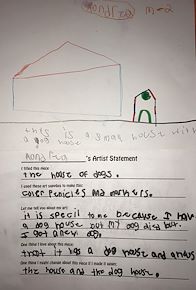 m-2
this is a smar house with
a dog house
's Artist Statement
I titled this piece:
the house of dogs.
I used these art supplies to make this:
coler pencles and markers.
Let me tell you about my art:
it is specil to me because I have
a dog house but my dog dies but.
I got a new dog.
One thing I love about this piece:
that it has a dog house and
One thing I would change about this piece if I made it again:
the house and the dog house.